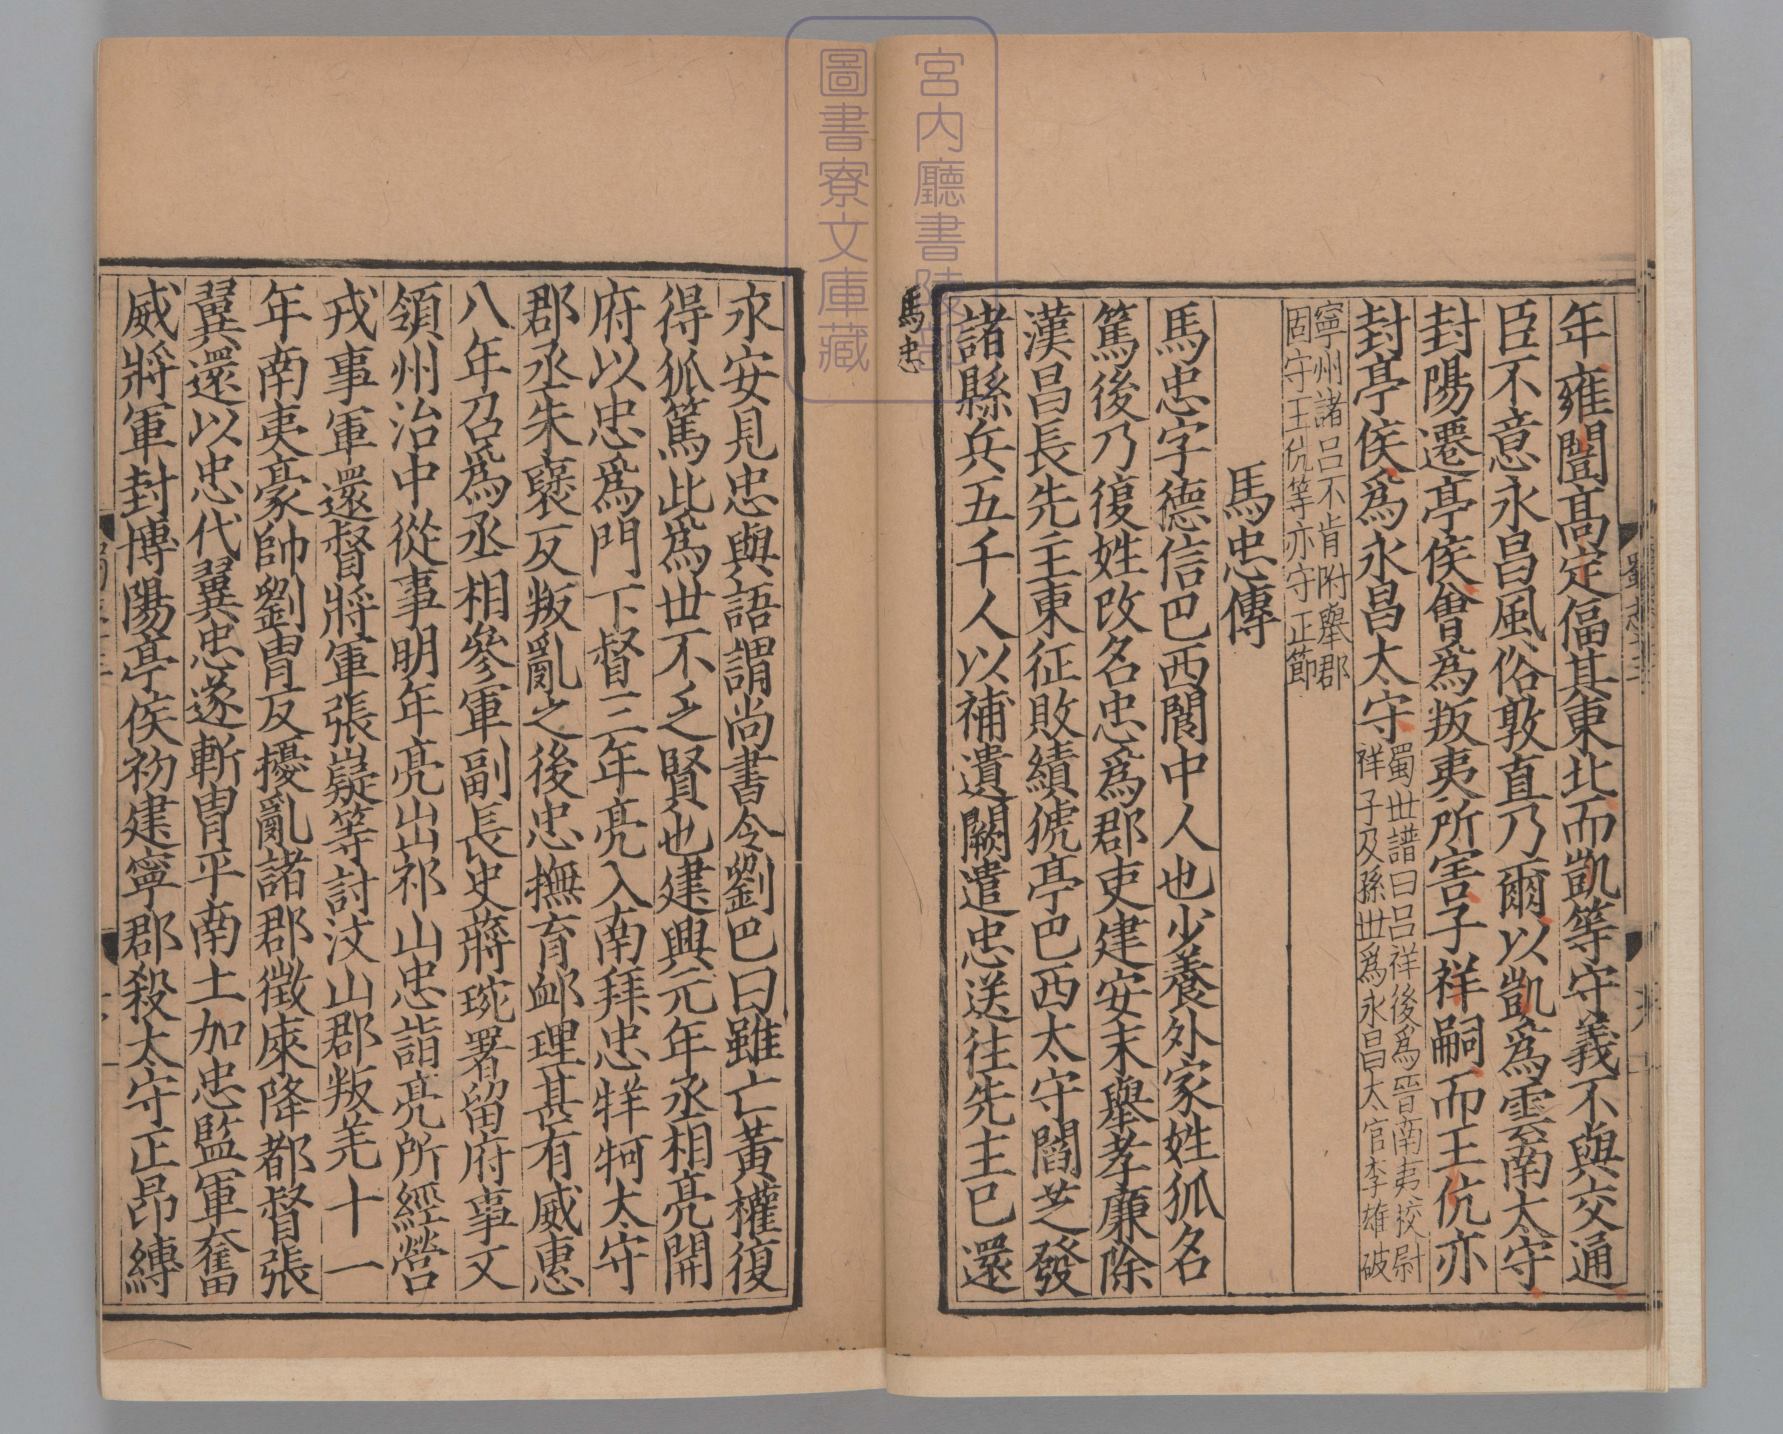 年雍闓高定偪其東北而凱等守義不與交通
臣不意永昌風俗敦直乃爾以凱爲雲南太守
封陽遷亭侯會爲叛夷所害子祥嗣而王伉亦
封亭侯爲永昌太守蜀世譜曰呂祥後爲晉南夷校尉
祥子及孫世爲永昌太官李雄破
寧州諸呂不肯附舉郡
固守王伉等亦守正節
馬忠傳
馬忠字德信巴西閬中人也少養外家姓狐名
篤後乃復姓改名忠爲郡吏建安末舉孝廉除
漢昌長先主東征敗績猇亭巴西太守閻芝發
諸縣兵五千人以補遺闕遣忠送往先主已還
馬忠
永安見忠與語謂尚書令劉巴曰雖亡黃權復
得狐篤此爲世不乏賢也建興元年丞相亮開
府以忠爲門下督三年亮入南拜忠牂牁太守
郡丞朱襃反叛亂之後忠撫育卹理甚有威惠
八年召爲丞相參軍副長史蔣琬署留府事又
領州治中從事明年亮出祁山忠詣亮所經營
戎事軍還督將軍張嶷等討汶山郡叛羌十一
年南夷豪帥劉胄反擾亂諸郡徵庲降都督張
翼還以忠代翼忠遂斬胄平南土加忠監軍奮
威將軍封博陽亭侯初建寧郡殺太守正昂縛
宮内廳書陵部
圖書寮文庫藏